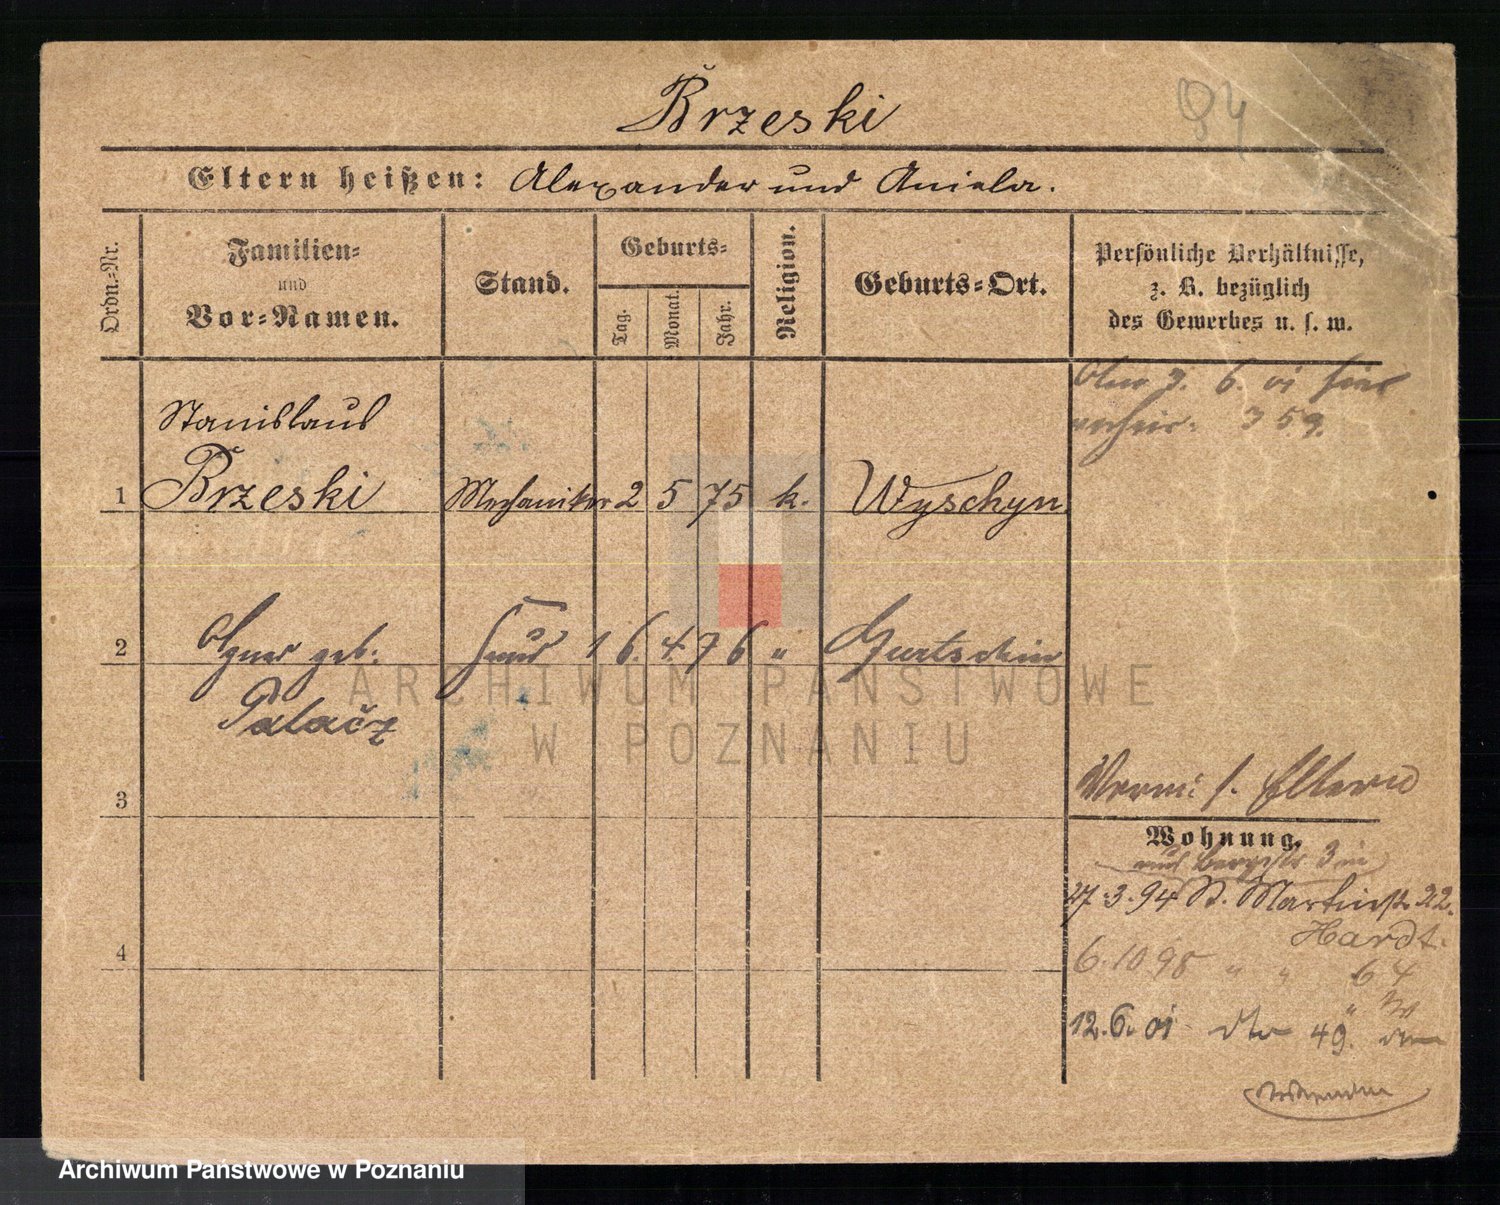 Brzeski
94
Eltern heißen: Alexander und Aniela.
Ordn.-Nr.
Familien-
und
Vor-Namen.
Stand.
Geburts-
Tag.
Monat.
Jahr.
Religion.
Geburts-Ort.
Persönliche Verhältnisse,
z. B. bezüglich
des Gewerbes u. s. w.
6. 01 hier
359.
Stanislaus
1 Brzeski Mechaniker 2 5 75 k. Wyschyn
2 Agnes geb. 16. 4. 76 " Gurtschin
Palacz
3
4
Verm: s. Eltern
Wohnung.
Bergstr. 3
27.3.94 St. Martinstr. 22.
Hardt.
6.10 98 " " 64
12.6.01 dto 49.
ARCHIWUM PAŃSTWOWE
W POZNANIU
Archiwum Państwowe w Poznaniu